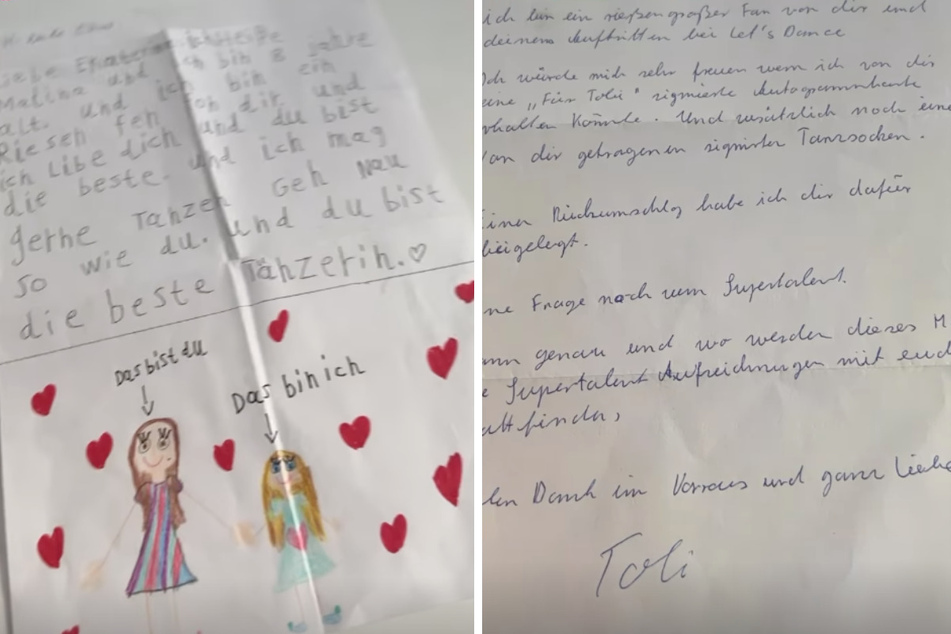 Liebe Ekaterina ich heiße
Malina und ich bin 8 Jahre
alt. und ich bin ein
Riesen fen fon dir und
ich Libe dich und du bist
die beste. und ich mag
gerne Tanzen Geh Nau
so wie du. und du bist
die beste Tänzerin.♡
Das bist du
Das bin ich
ich bin ein rießengroßer Fan von dir und
deinen Auftritten bei Let's Dance
Ich würde mich sehr freuen wenn ich von dir
eine „Für Toli" signierte Autogrammkarte
erhalten könnte. Und zusätzlich noch eine
von dir getragenen signirten Tanzsocken.
Einen Rückumschlag habe ich dir dafür
beigelegt.
ne Frage noch zum Supertalent.
ann genau und wo werden dieses
e Supertalent Aufzeichnungen mit euch
attfinden,
len Dank im Vorraus und ganz liebe
Toli